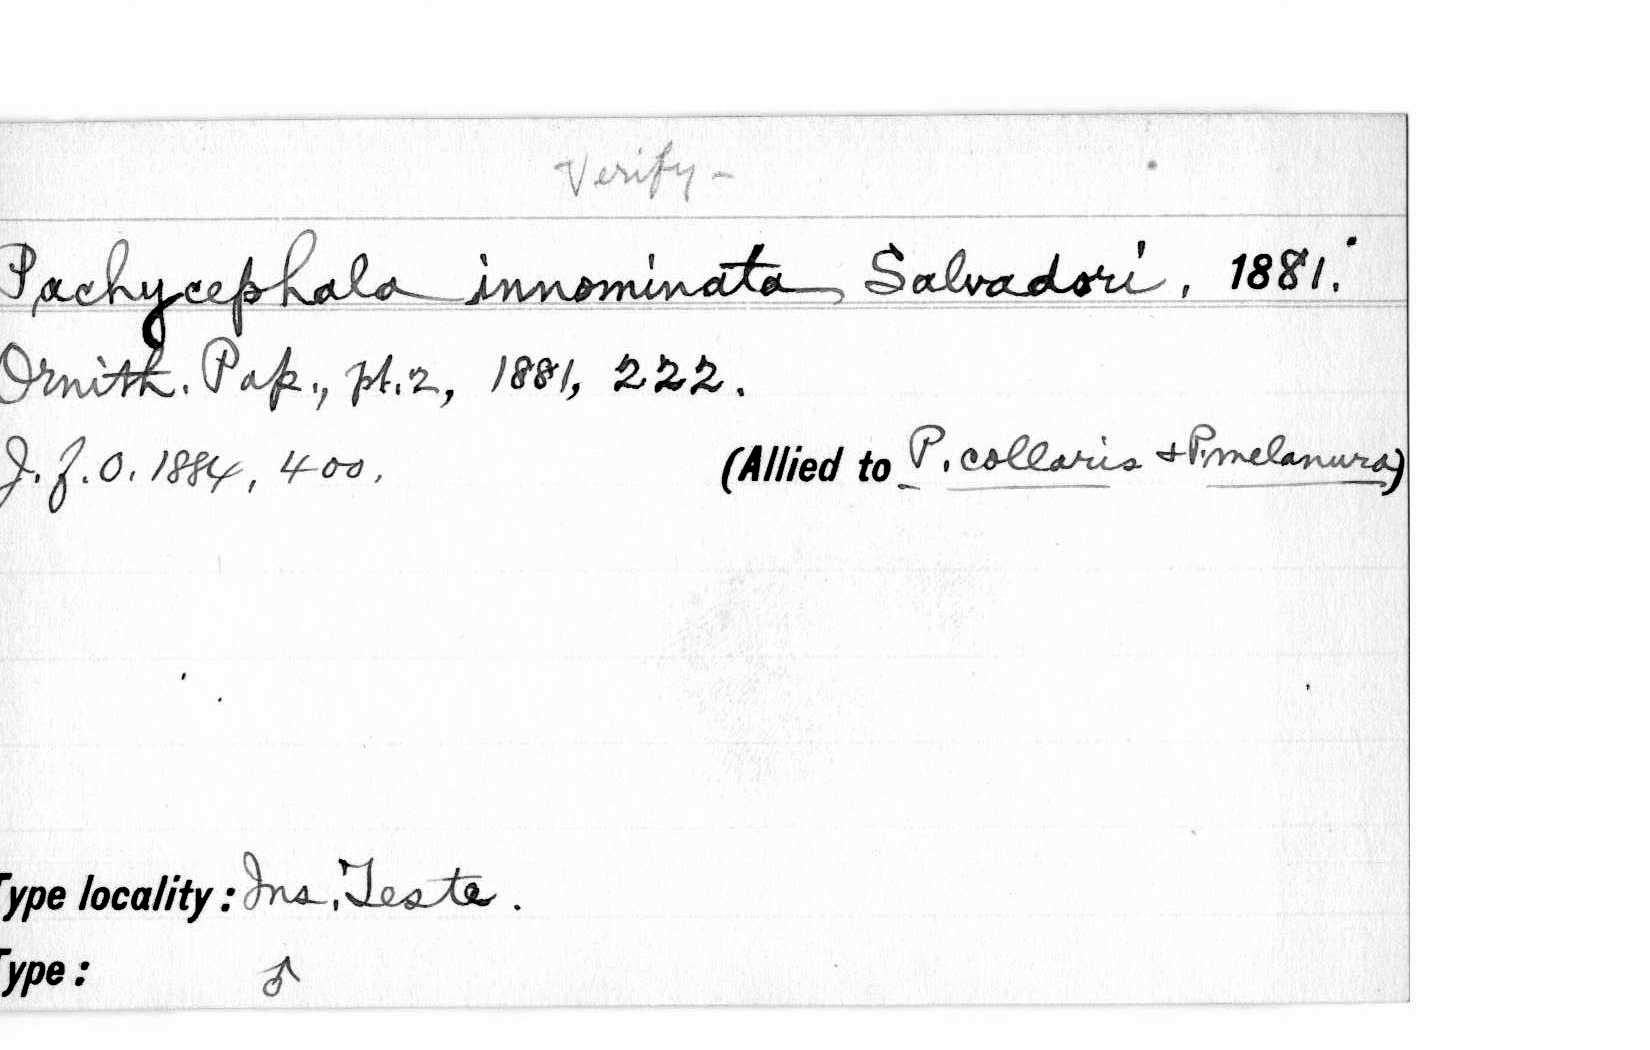 Verify -
Pachycephala innominata Salvadori, 1881.
Ornith. Pap., pt. 2, 1881, 222.
J. f. O. 1884, 400. (Allied to P. collaris + P. melanura)
Type locality: Ins. Teste.
Type: ♂